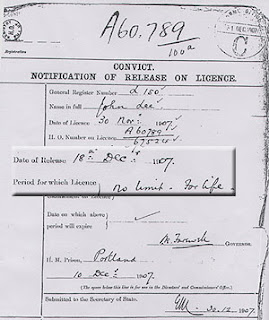 A60,789
/100a
Registration
C
CONVICT.
NOTIFICATION OF RELEASE ON LICENCE.
General Register Number L 150
Name in full John Lee
Date of Licence 30 Nov: 1907.
H. O. Number on Licence A60789
67524
Date of Release 18th Dec 1907.
Period for which Licence
No limit - For life.
Date on which above
period will expire
Governor.
H. M. Prison, Portland
10 Dec 1907.
(The space below this line is for use in the Directors' and Commissioners' Office.)
Submitted to the Secretary of State.
.12.1907.